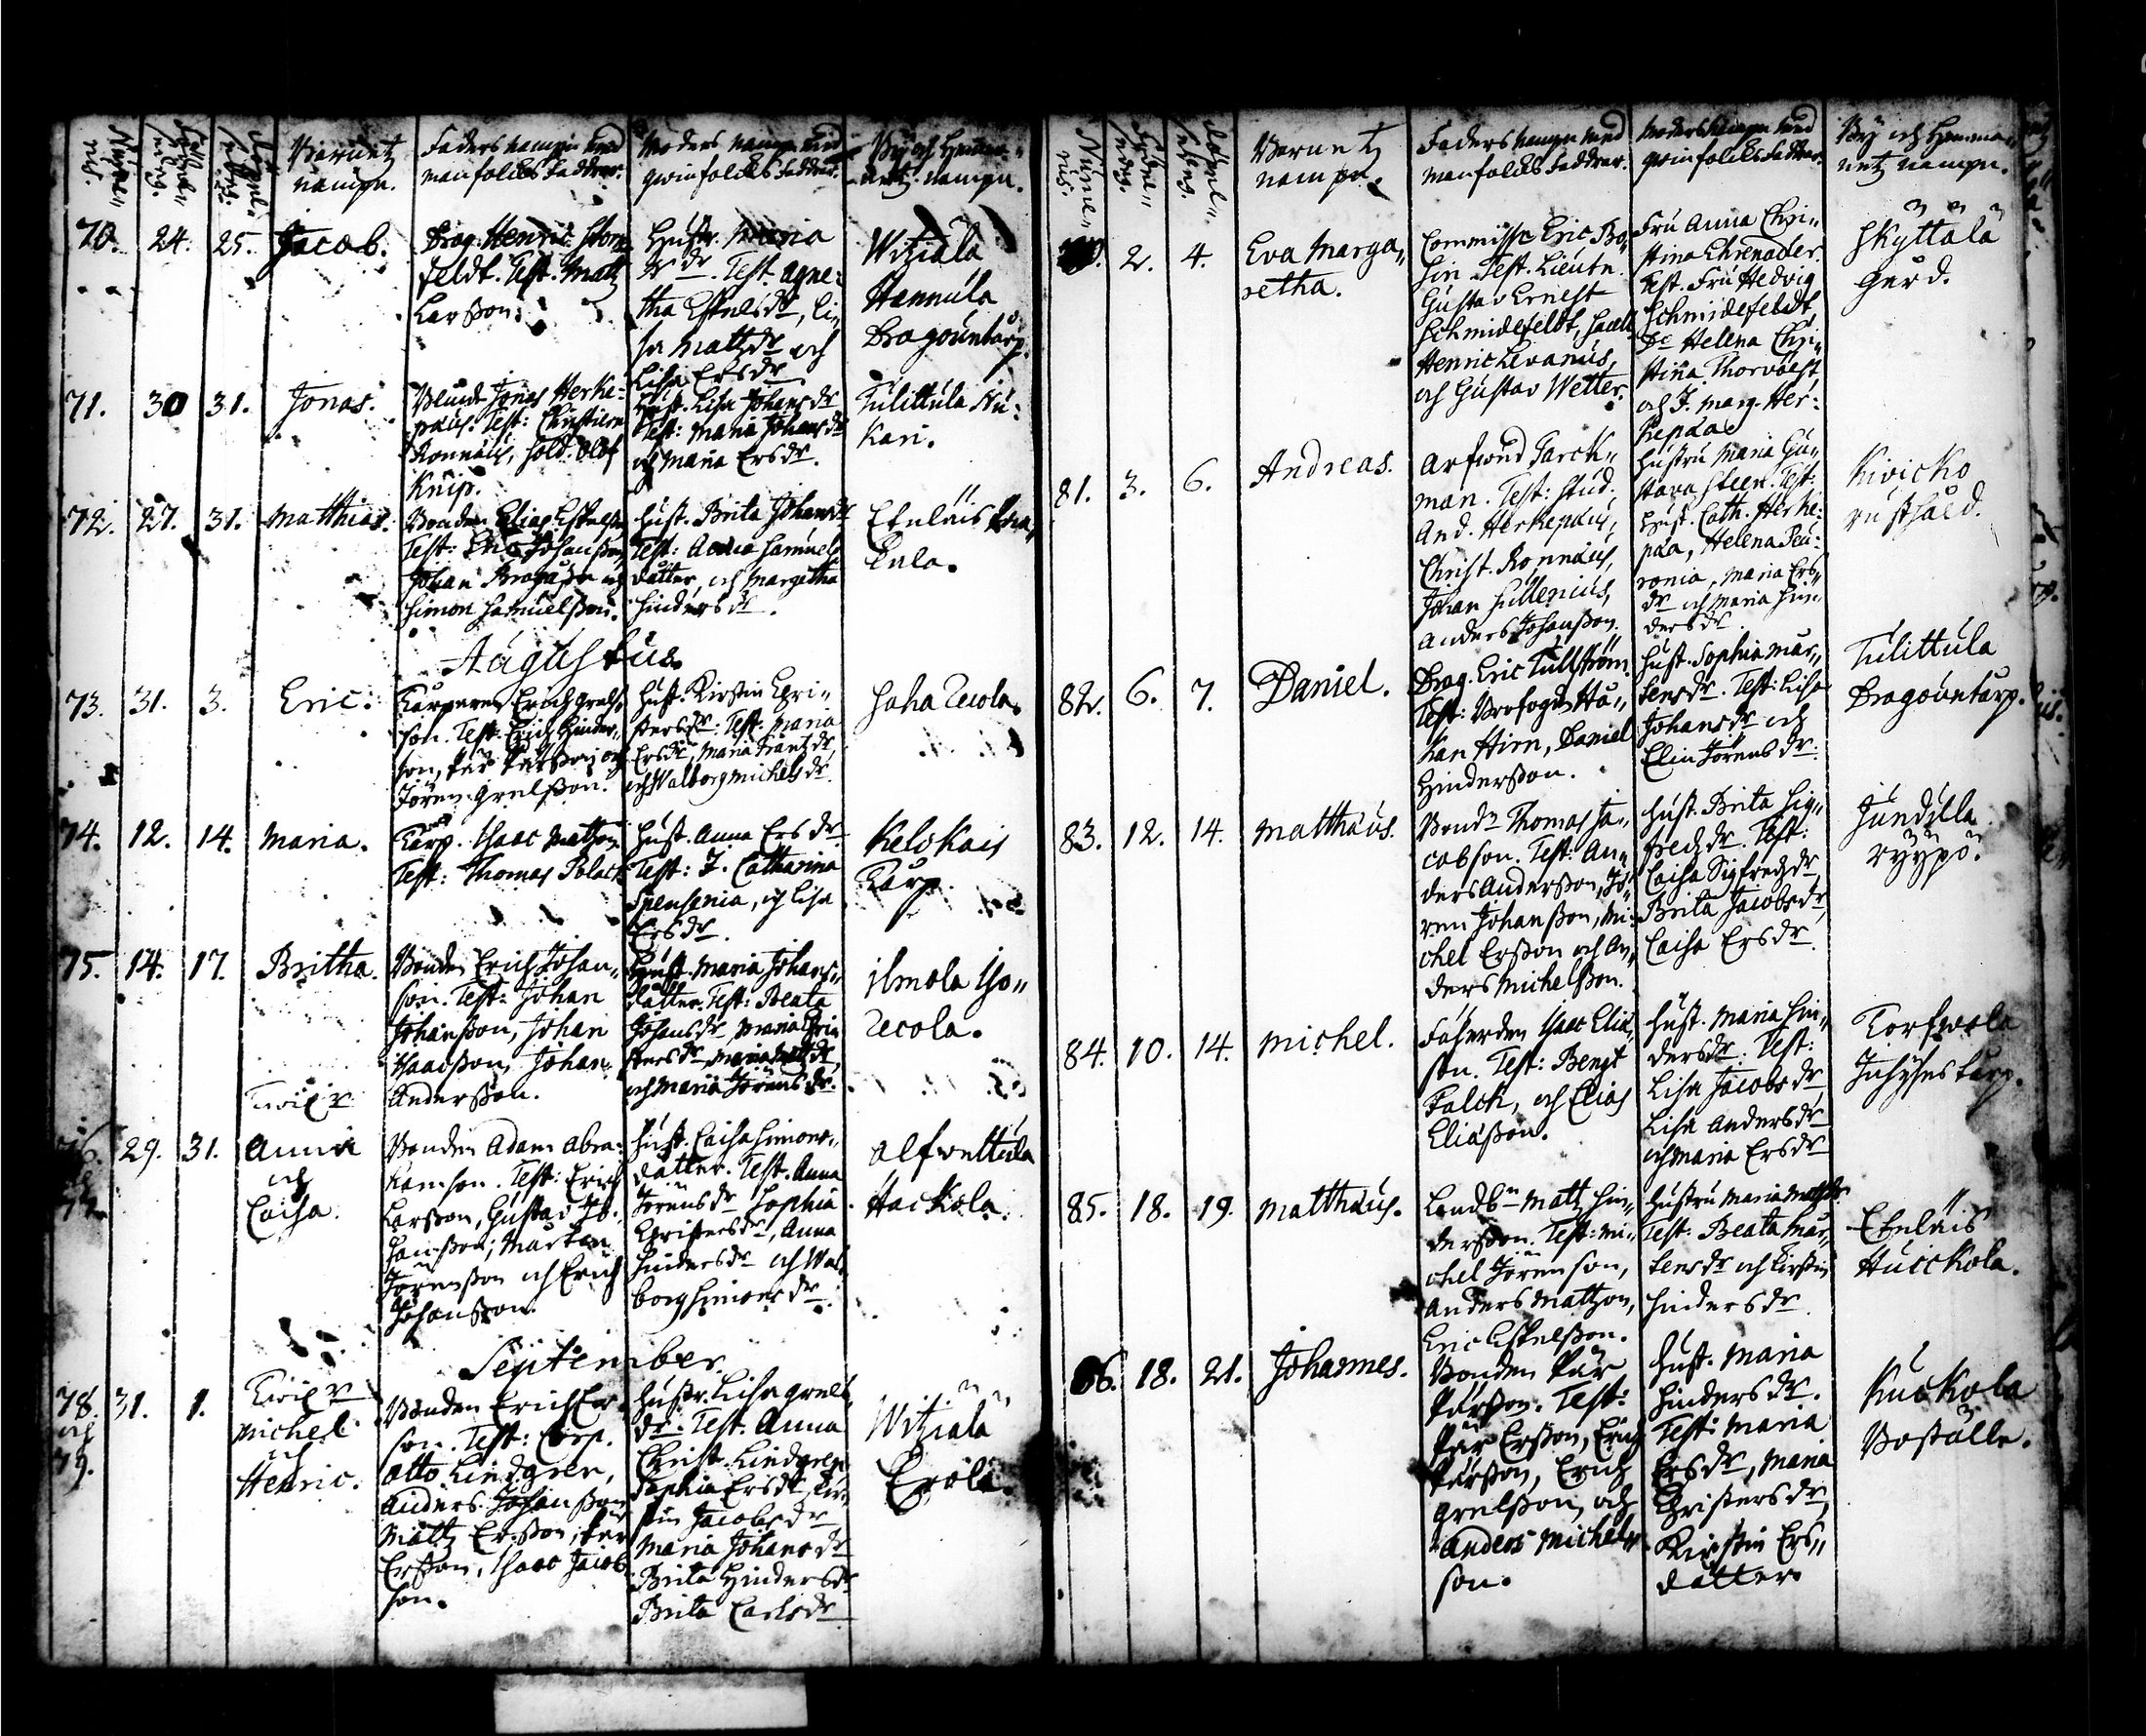 Nume„
rus.
Barnetz
nampn.
Faders nampn med
manfolcks faddrar.
Moders nampn med
qwinfolcks faddrar.
By och Hemma„
netz nampn.
70. 24. 25. Jacob.
Drag. Henric
feldt. Test. Matz
Larsson.
Hustr. Maria
dr. Test. Agne„
tha Eskelsdr, Li„
sa Matzdr och
Lisa Ersdr
Witziala
Hannula
Dragountorp.
71. 30 31. Jonas.
Jonas Herke„
pæus. Test: Christiern
Ronnæus, Sold. Olof
Knip.
Hust. Lisa Johansdr
Test: Maria Johansdr
och Maria Ersdr.
Tulittula Nu„
kari.
72. 27. 31. Matthias.
Bonden Elias Eskelson
Test: Eric Johansson,
Johan och
Simon Samuelsson.
Hust. Brita Johansdr
Test: Samuels
dåtter, och Margetha
Hindersdr.
Etuläis
Augustus.
73. 31. 3. Eric.
Torparen Erich Grels„
son. Test. Erich Hinder„
son, Per Persson och
Jören Grelsson.
Hust. Kirstin Chri„
stersdr. Test. Maria
Ersdr, Maria Frantzdr,
och Walborg Michelsdr.
Saha Zecola.
74. 12. 14. Maria.
Torp. Isaac Matzon
Test: Thomas Black
Hust. Anna Ersdr
Test: J. Catharina
Spensenia, och Lisa
Ersdr.
Kelokais
Torp.
75. 14. 17. Britha.
Bonden Erich Johan„
son. Test: Johan
Johansson, Johan
Isaacsson, Johan
Andersson.
Hust. Maria Johans„
dåtter. Test: Beata
Johansdr, Maria Chri„
stersdr,
och Maria Jörensdr.
Ilmola Iso„
Zecola.
29. 31. Anna
och
Caisa.
Bonden Adam Abra„
hamson. Test: Erich
Larsson, Gustav Jo„
hansson, Marten
Jörensson och Erich
Johansson.
Hust. Caisa Simons„
dåtter. Test. Anna
Jörensdr Sophia
Christersdr, Anna
Hindersdr och Wal„
borg Simonsdr.
Alfwettula
Hackola.
September.
78. 31. 1.
och
79.
Michel
och
Henric.
Bonden Erich Er„
son. Test: Corp.
Otto Lindgren,
Anders Johansson
Matz Ersson, Per
Ersson, Isaac Jacob
son.
Hustr. Lisa Grels
dr. Test. Anna
Christ. Lindgren
Sophia Ersdr, Kir„
stin Jacobsdr
Maria Johansdr
Brita Hindersdr
Brita Carlsdr
Witziala
Erola.
Barnetz
nampn.
Faders nampn med
manfolcks faddrar.
Moders nampn med
qwinfolcks faddrar.
By och Hemma„
netz nampn.
2. 4. Eva Marga„
retha.
Commiss. Eric Bo„
sin. Test. Lieutn.
Gustav Ernest
Schmidefeldt, Sacell.
Henric Levanus,
och Gustav Wetter.
Fru Anna Chri„
stina Ehrenadler.
Test. Fru Hedvig
Schmidefeldt,
Helena Chri„
stina Thorvöest
och J. Marg. Her„
kepæa
Skyttälä
gård.
81. 3. 6. Andreas.
Arfwed Parck„
man. Test: Stud.
And. Herkepæus,
Christ. Ronnæus,
Johan Sullenius,
Anders Johansson.
Hustru Maria Gu„
stava Steen. Test.
Hust. Cath. Herke„
pæa, Helena Peu„
ronia, Maria Ers„
dr och Maria Hin„
dersdr.
Kivicko
rusthåld.
82. 6. 7. Daniel.
Drag. Eric Tullström.
Test: Hå„
kan Hirn, Daniel
Hindersson.
Hust. Sophia Mar„
tensdr. Test: Lisa
Johansdr och
Elin Jörensdr.
Tulittula
Dragountorp.
83. 12. 14. Matthæus.
Bondn Thomas Ja„
cobson. Test: An„
ders Andersson, Jö„
ren Johansson, Mi„
chel Ersson och An„
ders Michelsson.
Hust. Brita Sig„
fredzdr. Test:
Caisa Sigfredzdr
Brita Jacobsdr,
Caisa Ersdr.
Jundilla
ryypö.
84. 10. 14. Michel.
Isaac Elia„
son. Test: Bengt
Falck, och Elias
Eliasson.
Hust. Maria Hin„
dersdr. Test:
Lisa Jacobsdr
Lisa Andersdr
och Maria Ersdr
Torfwola
torp.
85. 18. 19. Matthæus.
Landbn Matz Hin„
dersson. Test: Mi„
chel Jörenson,
Anders Matzon,
Eric Eskelsson.
Hustru Maria Matzdr.
Test: Beata Mar„
tensdr och Kirstin
Hindersdr
Etuläis
Huickola.
86. 18. 21. Johannes.
Bonden Pär
Pärsson. Test:
Pär Ersson, Erich
Pärsson, Erich
Grelsson, och
Anders Michels„
son.
Hust. Maria
Hindersdr.
Test: Maria
Ersdr, Maria
Christersdr,
Kirstin Ers„
dåtter.
Kuckola
Boställe.